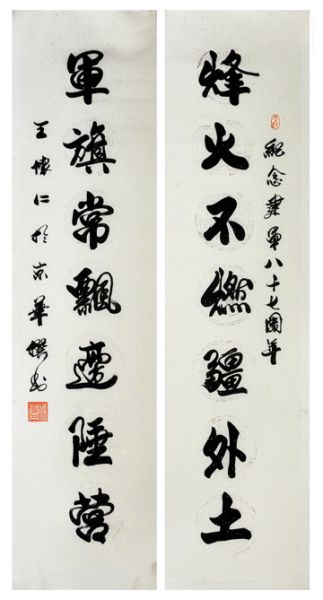 紀念建軍八十七周年
烽火不燃疆外土
軍旗常飄邊陲營
王懷仁於京華撰書